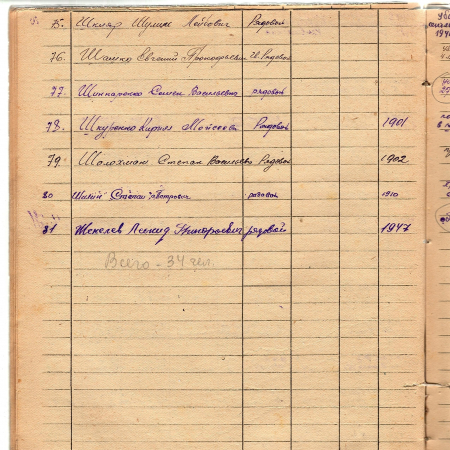 75. Шкляр Шулим Лейбович Рядовой
76. Шашко Евгений Прокофьевич Гв. Рядовой
77. Шинкаренко Семен Васильевич рядовой
78. Шкуренко Кирилл Моисеев. Рядовой 1901
79. Шолохман Степан Васильевич Рядовой 1902
80 Степан Петрович рядовой 1910
81 Леонид Григорьевич рядовой 1947
Всего - 34 чел.